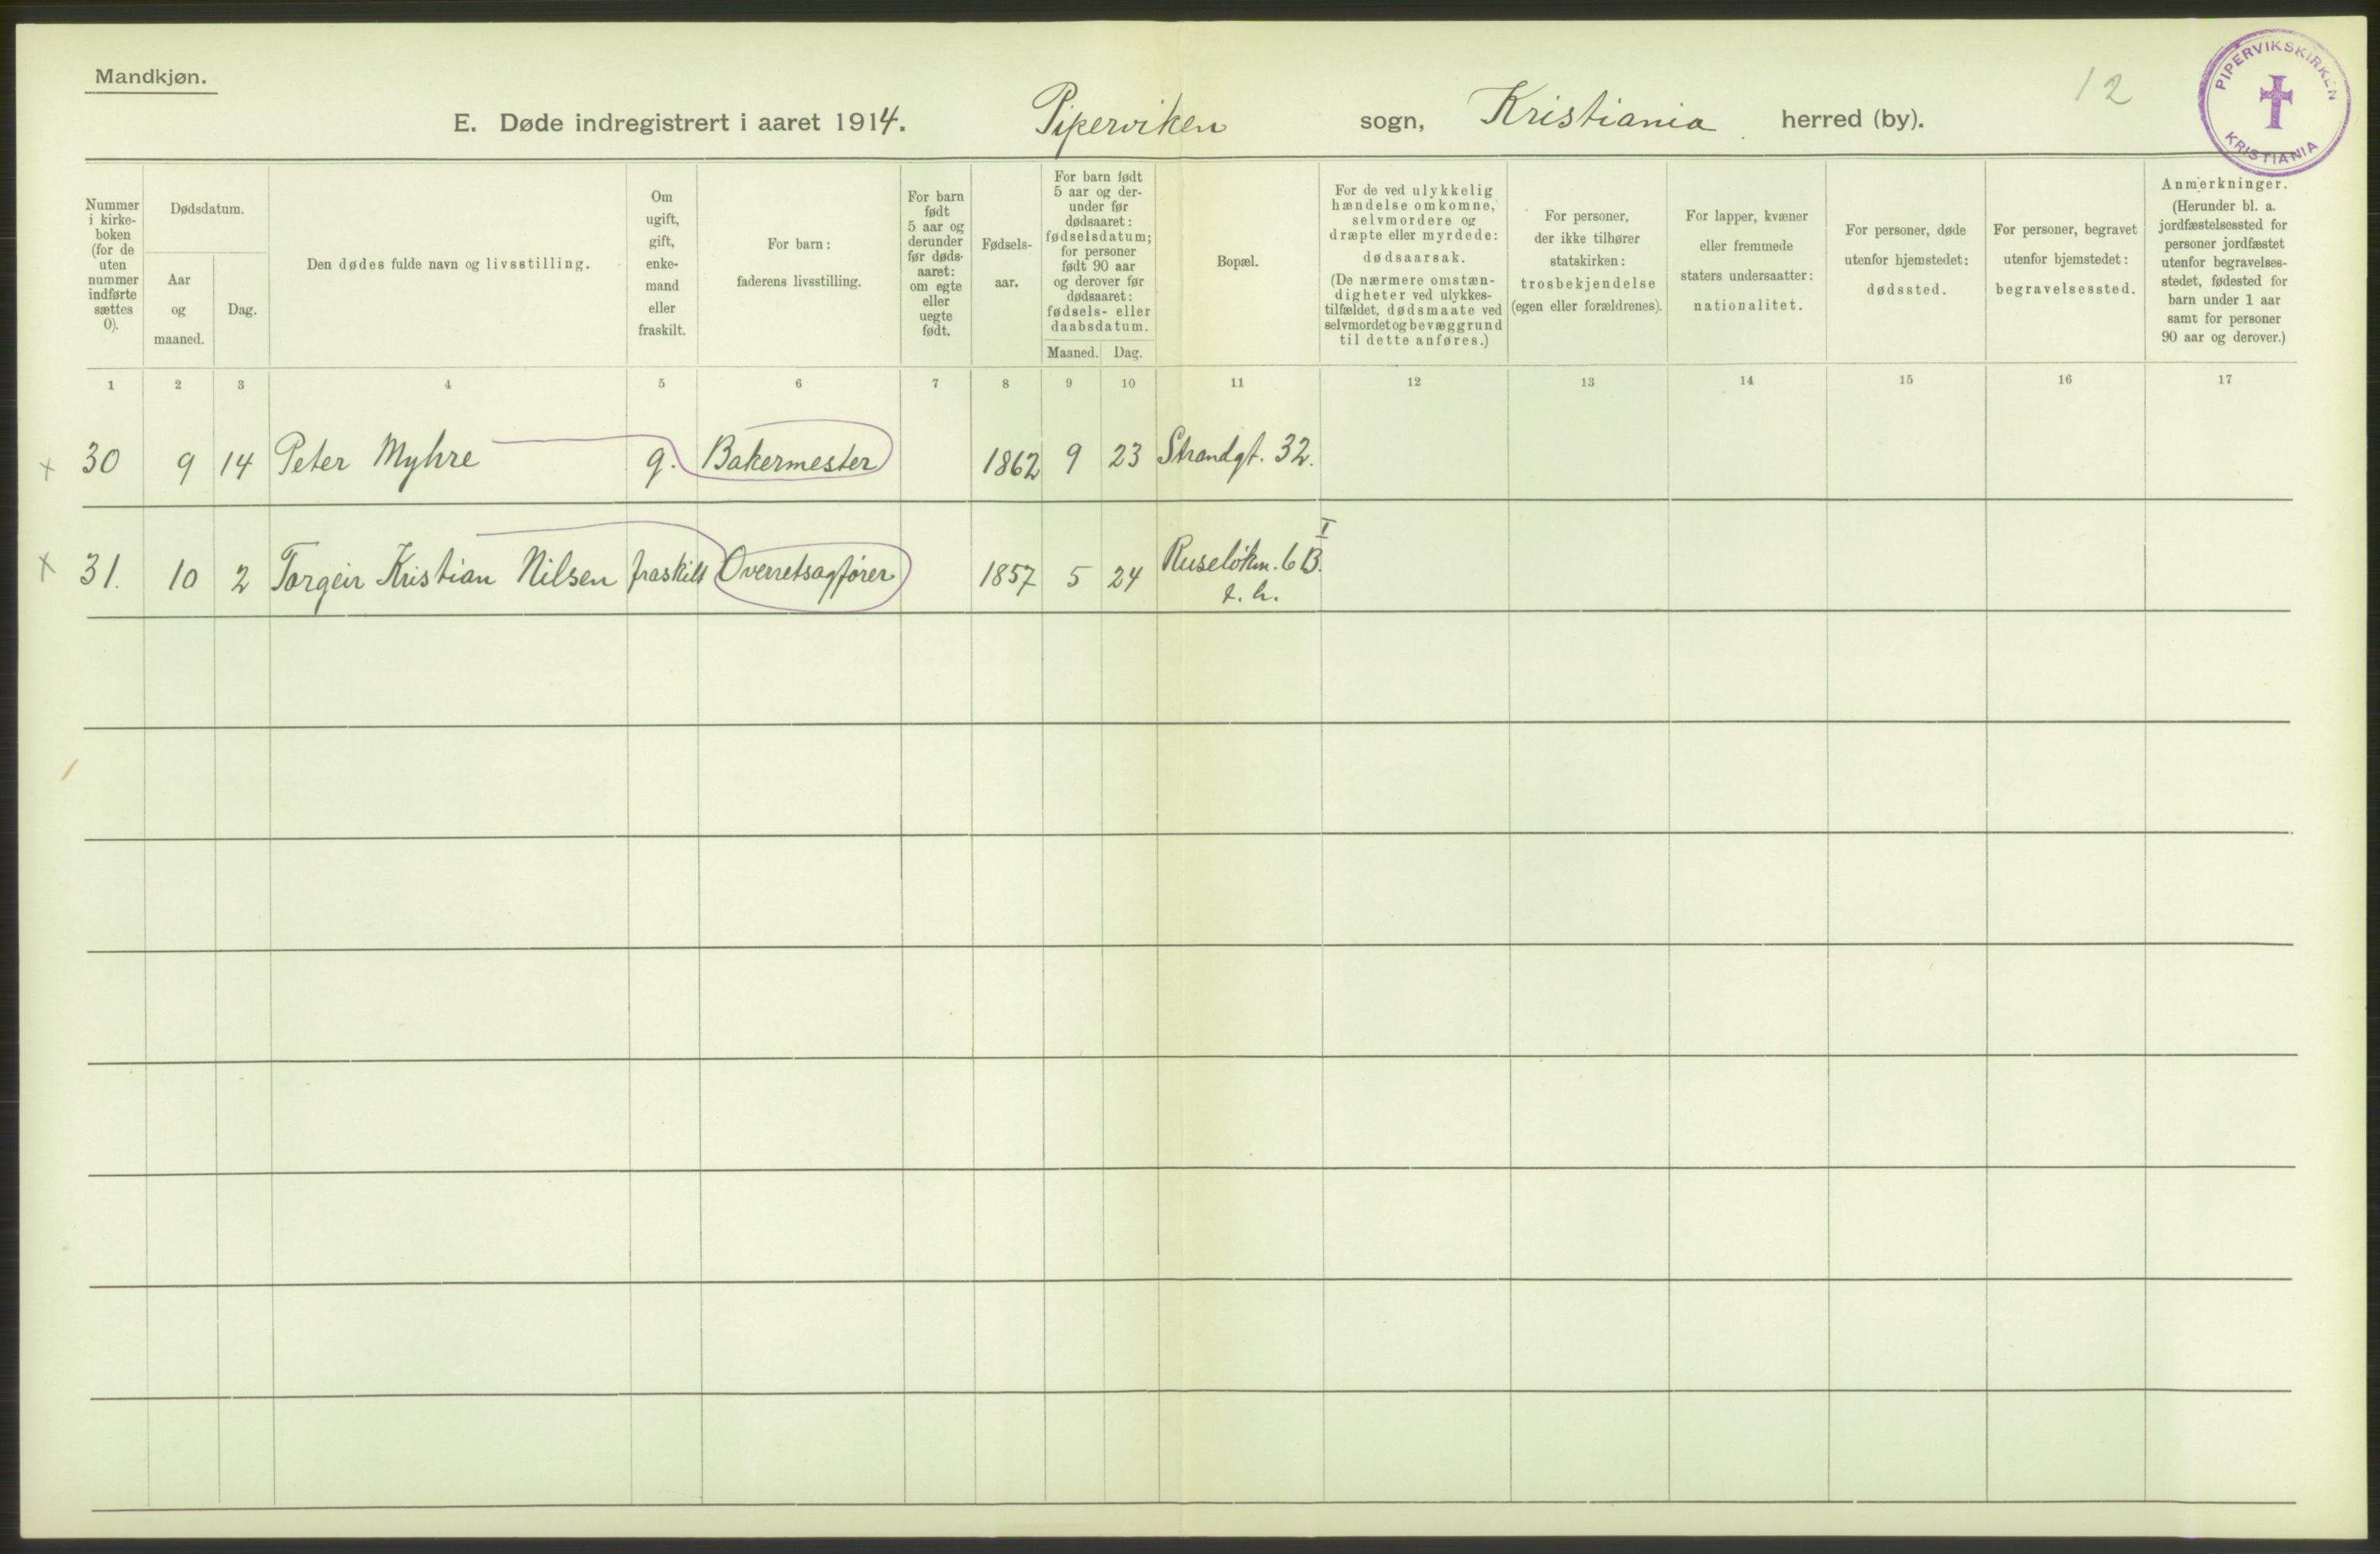 Mandkjøn.
12
PIPERVIKSKIRKEN
KRISTIANIA
E. Døde indregistrert i aaret 1914. Piperviken sogn, Kristiania herred (by).
Nummer
i kirke-
boken
(for de
uten
nummer
indførte
sættes
0).
Dødsdatum.
Aar
og
maaned.
Dag.
Den dødes fulde navn og livsstilling.
Om
ugift,
gift,
enke-
mand
eller
fraskilt.
For barn:
faderens livsstilling.
For barn
født
5 aar og
derunder
før døds-
aaret:
om egte
eller
uegte
født.
Fødsels-
aar.
For barn født
5 aar og der-
under før
dødsaaret:
fødselsdatum;
for personer
født 90 aar
og derover før
dødsaaret:
fødsels- eller
daabsdatum.
Maaned. Dag.
Bopæl.
For de ved ulykkelig
hændelse omkomne,
selvmordere og
dræpte eller myrdede:
dødsaarsak.
(De nærmere omstæn-
digheter ved ulykkes-
tilfældet, dødsmaate ved
selvmordet og bevæggrund
til dette anføres.)
For personer,
der ikke tilhører
statskirken:
trosbekjendelse
(egen eller forældrenes).
For lapper, kvæner
eller fremmede
staters undersaatter:
nationalitet.
For personer, døde
utenfor hjemstedet:
dødssted.
For personer, begravet
utenfor hjemstedet:
begravelsessted.
Anmerkninger.
(Herunder bl. a.
jordfæstelsessted for
personer jordfæstet
utenfor begravelses-
stedet, fødested for
barn under 1 aar
samt for personer
90 aar og derover.)
1 2 3 4 5 6 7 8 9 10 11 12 13 14 15 16 17
x 30 9 14 Peter Myhre g. Bakermester 1862 9 23 Strandgt. 32.
x 31. 10 2 Torgeir Kristian Nilsen fraskilt Overretsagfører 1857 5 24 Ruseløkvn. 6 B. I
t. h.